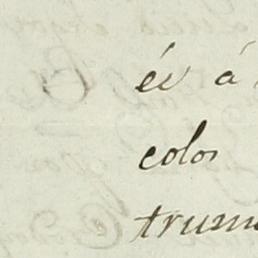 és á
colos
trum